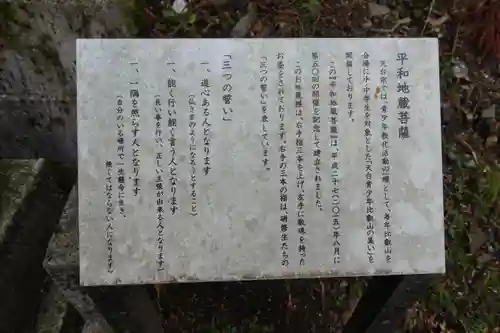 平和地蔵菩薩
天台宗では「青少年教化活動の一環として、毎年比叡山を
会場に小・中学生を対象とした「天台青少年比叡山の集い」を
開催しております。
この『平和地蔵菩薩』は、平成二十七(二〇一五)年八月に
第五〇回の開催を記念して建立されました。
このお地蔵様は、右手指三本を上げ、左手に散華を持った
お姿をされております。右手の三本指は、研修生たちの
「三つの誓い」を表しています。
「三つの誓い」
一、道心ある人となります
(仏さまのようになろうとすること)
一、能く行い能く言う人となります
(良い事を行い、正しい主張が出来る人となります)
一、一隅を照らす人となります
(自分のいる場所で一生懸命に生き、
無くてはならない人になります)